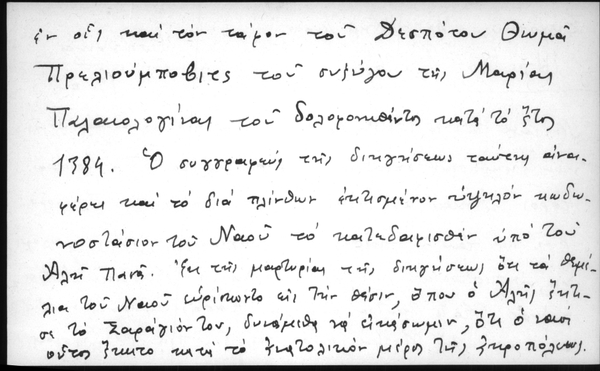 ἐν οἷς καὶ τὸν τάφον τοῦ Δεσπότου Θωμᾶ
Πρελιούμποβιτς τοῦ συζύγου τῆς Μαρίας
Παλαιολογίνας τοῦ δολοφονηθέντος κατὰ τὸ ἔτος
1384. Ὁ συγγραφεὺς τῆς διηγήσεως ταύτης ἀνα-
φέρει καὶ τὸ διὰ πλίνθων ἐκτισμένον ὑψηλὸν κωδω-
νοστάσιον τοῦ Ναοῦ τὸ κατεδαφισθὲν ὑπὸ τοῦ
Ἀλῆ Πασᾶ. Ἐκ τῆς μαρτυρίας τῆς διηγήσεως ὅτι τὰ θεμέ-
λια τοῦ Ναοῦ εὑρίσκοντο εἰς τὴν θέσιν, ὅπου ὁ Ἀλῆς ἔκτι-
σε τὸ Σαράγιόν του, δυνάμεθα νὰ εἰκάσωμεν, ὅτι ὁ ναὸς
οὗτος ἔκειτο κατὰ τὸ ἀνατολικὸν μέρος τῆς ἀκροπόλεως.